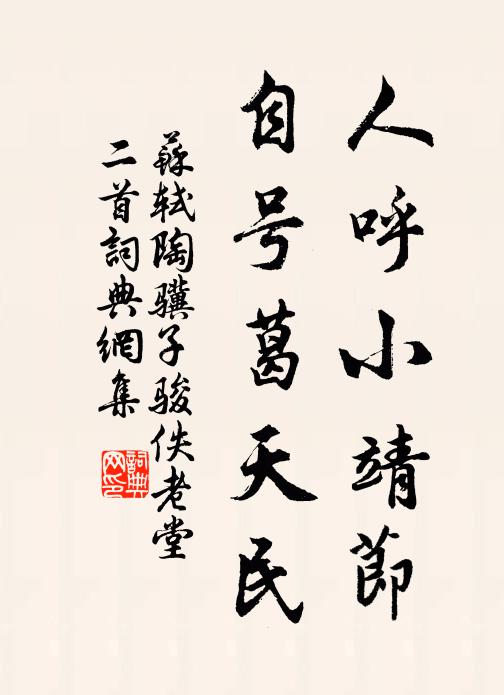 人呼小靖節
自号葛天民
蘇轼陶驥子骏佚老堂
二首詞典網集
詞典网印